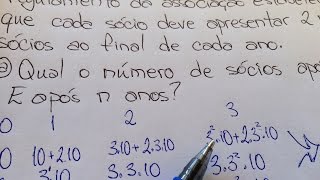 Regulamento da associação
que cada sócio deve apresentar 2
sócios ao final de cada ano.
a) Qual o número de sócios apó
E após n anos?
0 1 2 3
0 10+2.10 3.10+2.3.10 3².10+2.3².10
3¹.10 3.3.10 3.3².10